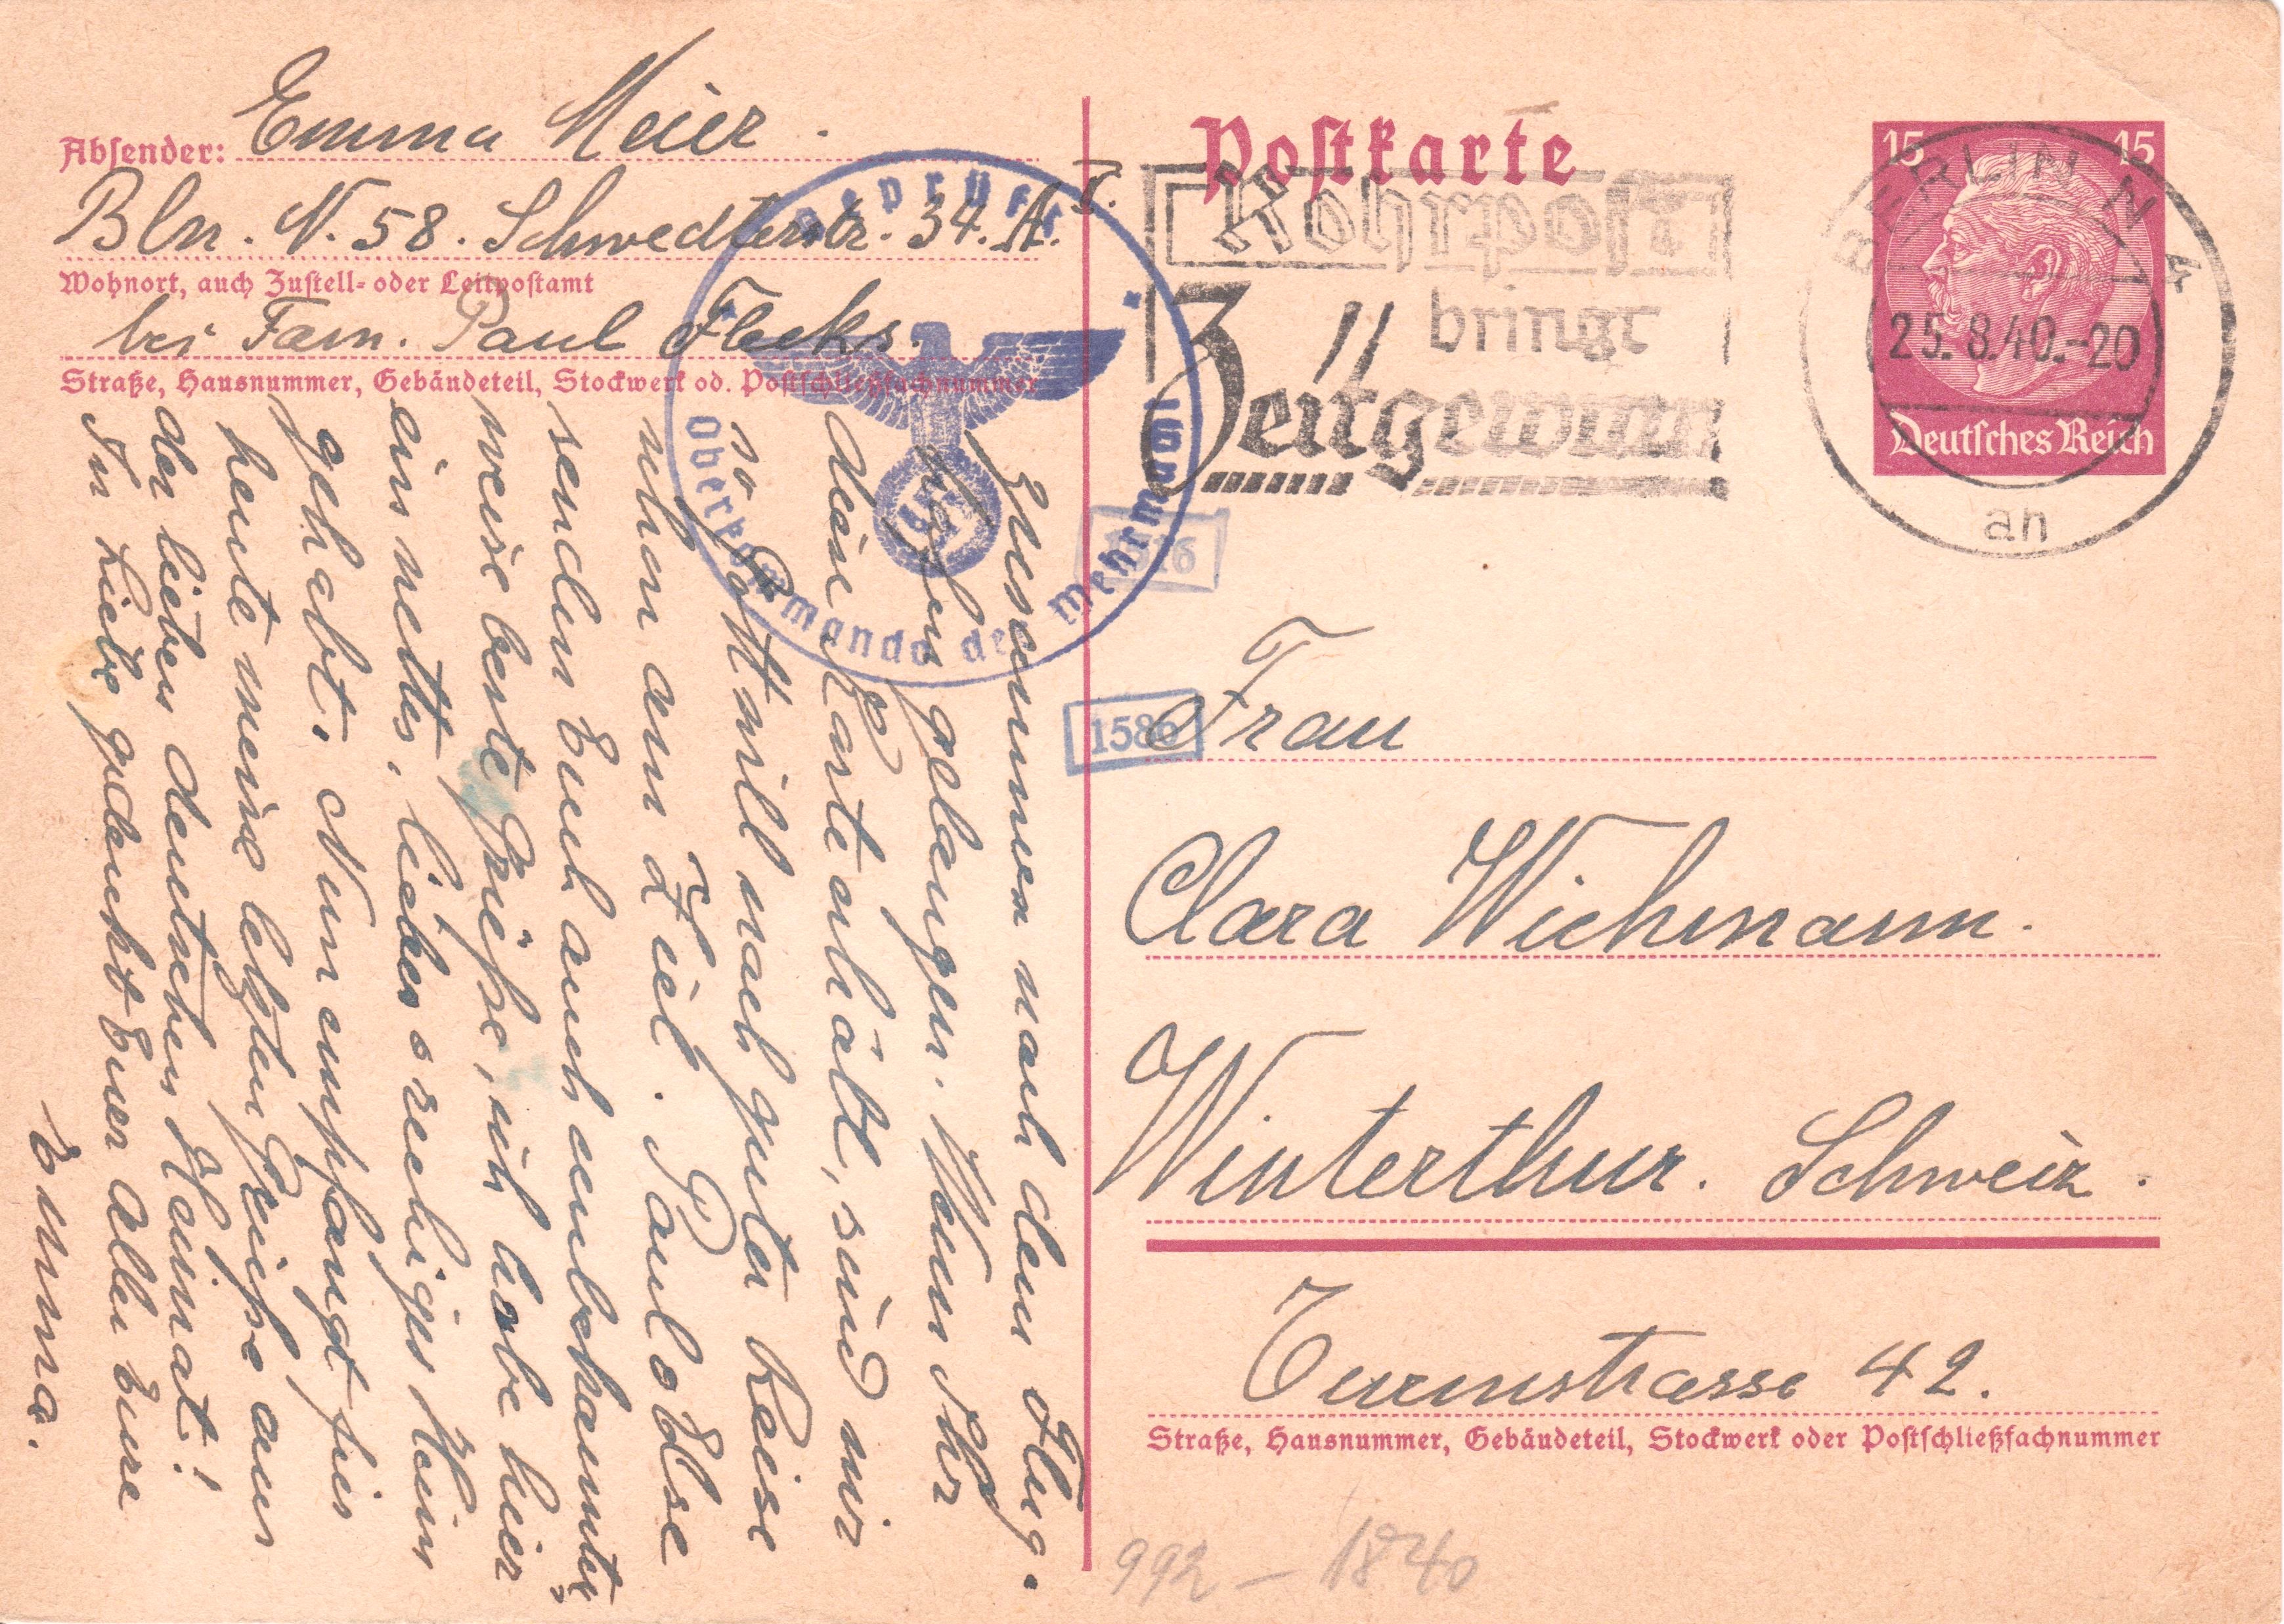 Absender: Emma Meier.
Bln. N. 58. Schwedterstr. 34. A. I.
Wohnort, auch Zustell- oder Leitpostamt
bei Fam. Paul Flecks.
Straße, Hausnummer, Gebäudeteil, Stockwerk od. Postschließfachnummer
Postkarte
Rohrpost
bringt
Zeitgewinn
15 15
Deutsches Reich
BERLIN N 4
25.8.40.-20
an
Geprüft
Oberkommando der Wehrmacht
1586
Frau
Clara Wiehmann.
Winterthur. Schweiz.
Turmstrasse 42.
Straße, Hausnummer, Gebäudeteil, Stockwerk oder Postschließfachnummer
zusammen nach dem Flug-
hafen gelangen. Wenn Ihr
diese Karte erhält, sind wir
so Gott will nach guter Reise
schon am Ziel. Paul & Else
senden Euch auch unbekannter
weise beste Grüße, ich habe hier
ein nettes, liebes & ruhiges Heim
gehabt. Nun empfangt für
heute meine letzten Grüße aus
der lieben deutschen Heimat!
In Liebe gedenkt Euer aller Eure
Emma.
992 - 1840